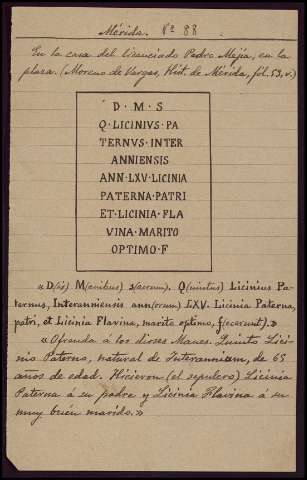 Mérida. Nº 88
En la casa del licenciado Pedro Mejía, en la
plaza. (Moreno de Vargas, Hist. de Mérida, fol. 53, v.)
D · M · S
Q · LICINIVS · PA
TERNVS · INTER
ANNIENSIS
ANN · LXV · LICINIA
PATERNA · PATRI
ET · LICINIA · FLA
VINA · MARITO
OPTIMO · F
«D(is) M(anibus) s(acrum). Q(uintus) Licinius Pa-
ternus, Interanniensis ann(orum) LXV. Licinia Paterna,
patri, et Licinia Flavina, marito optimo, f(ecerunt).»
«Ofrenda á los dioses Manes. Quinto Lici-
nio Paterno, natural de Interannium, de 65
años de edad. Hicieron (el sepulcro) Licinia
Paterna á su padre y Licinia Flavina á su
muy buen marido.»